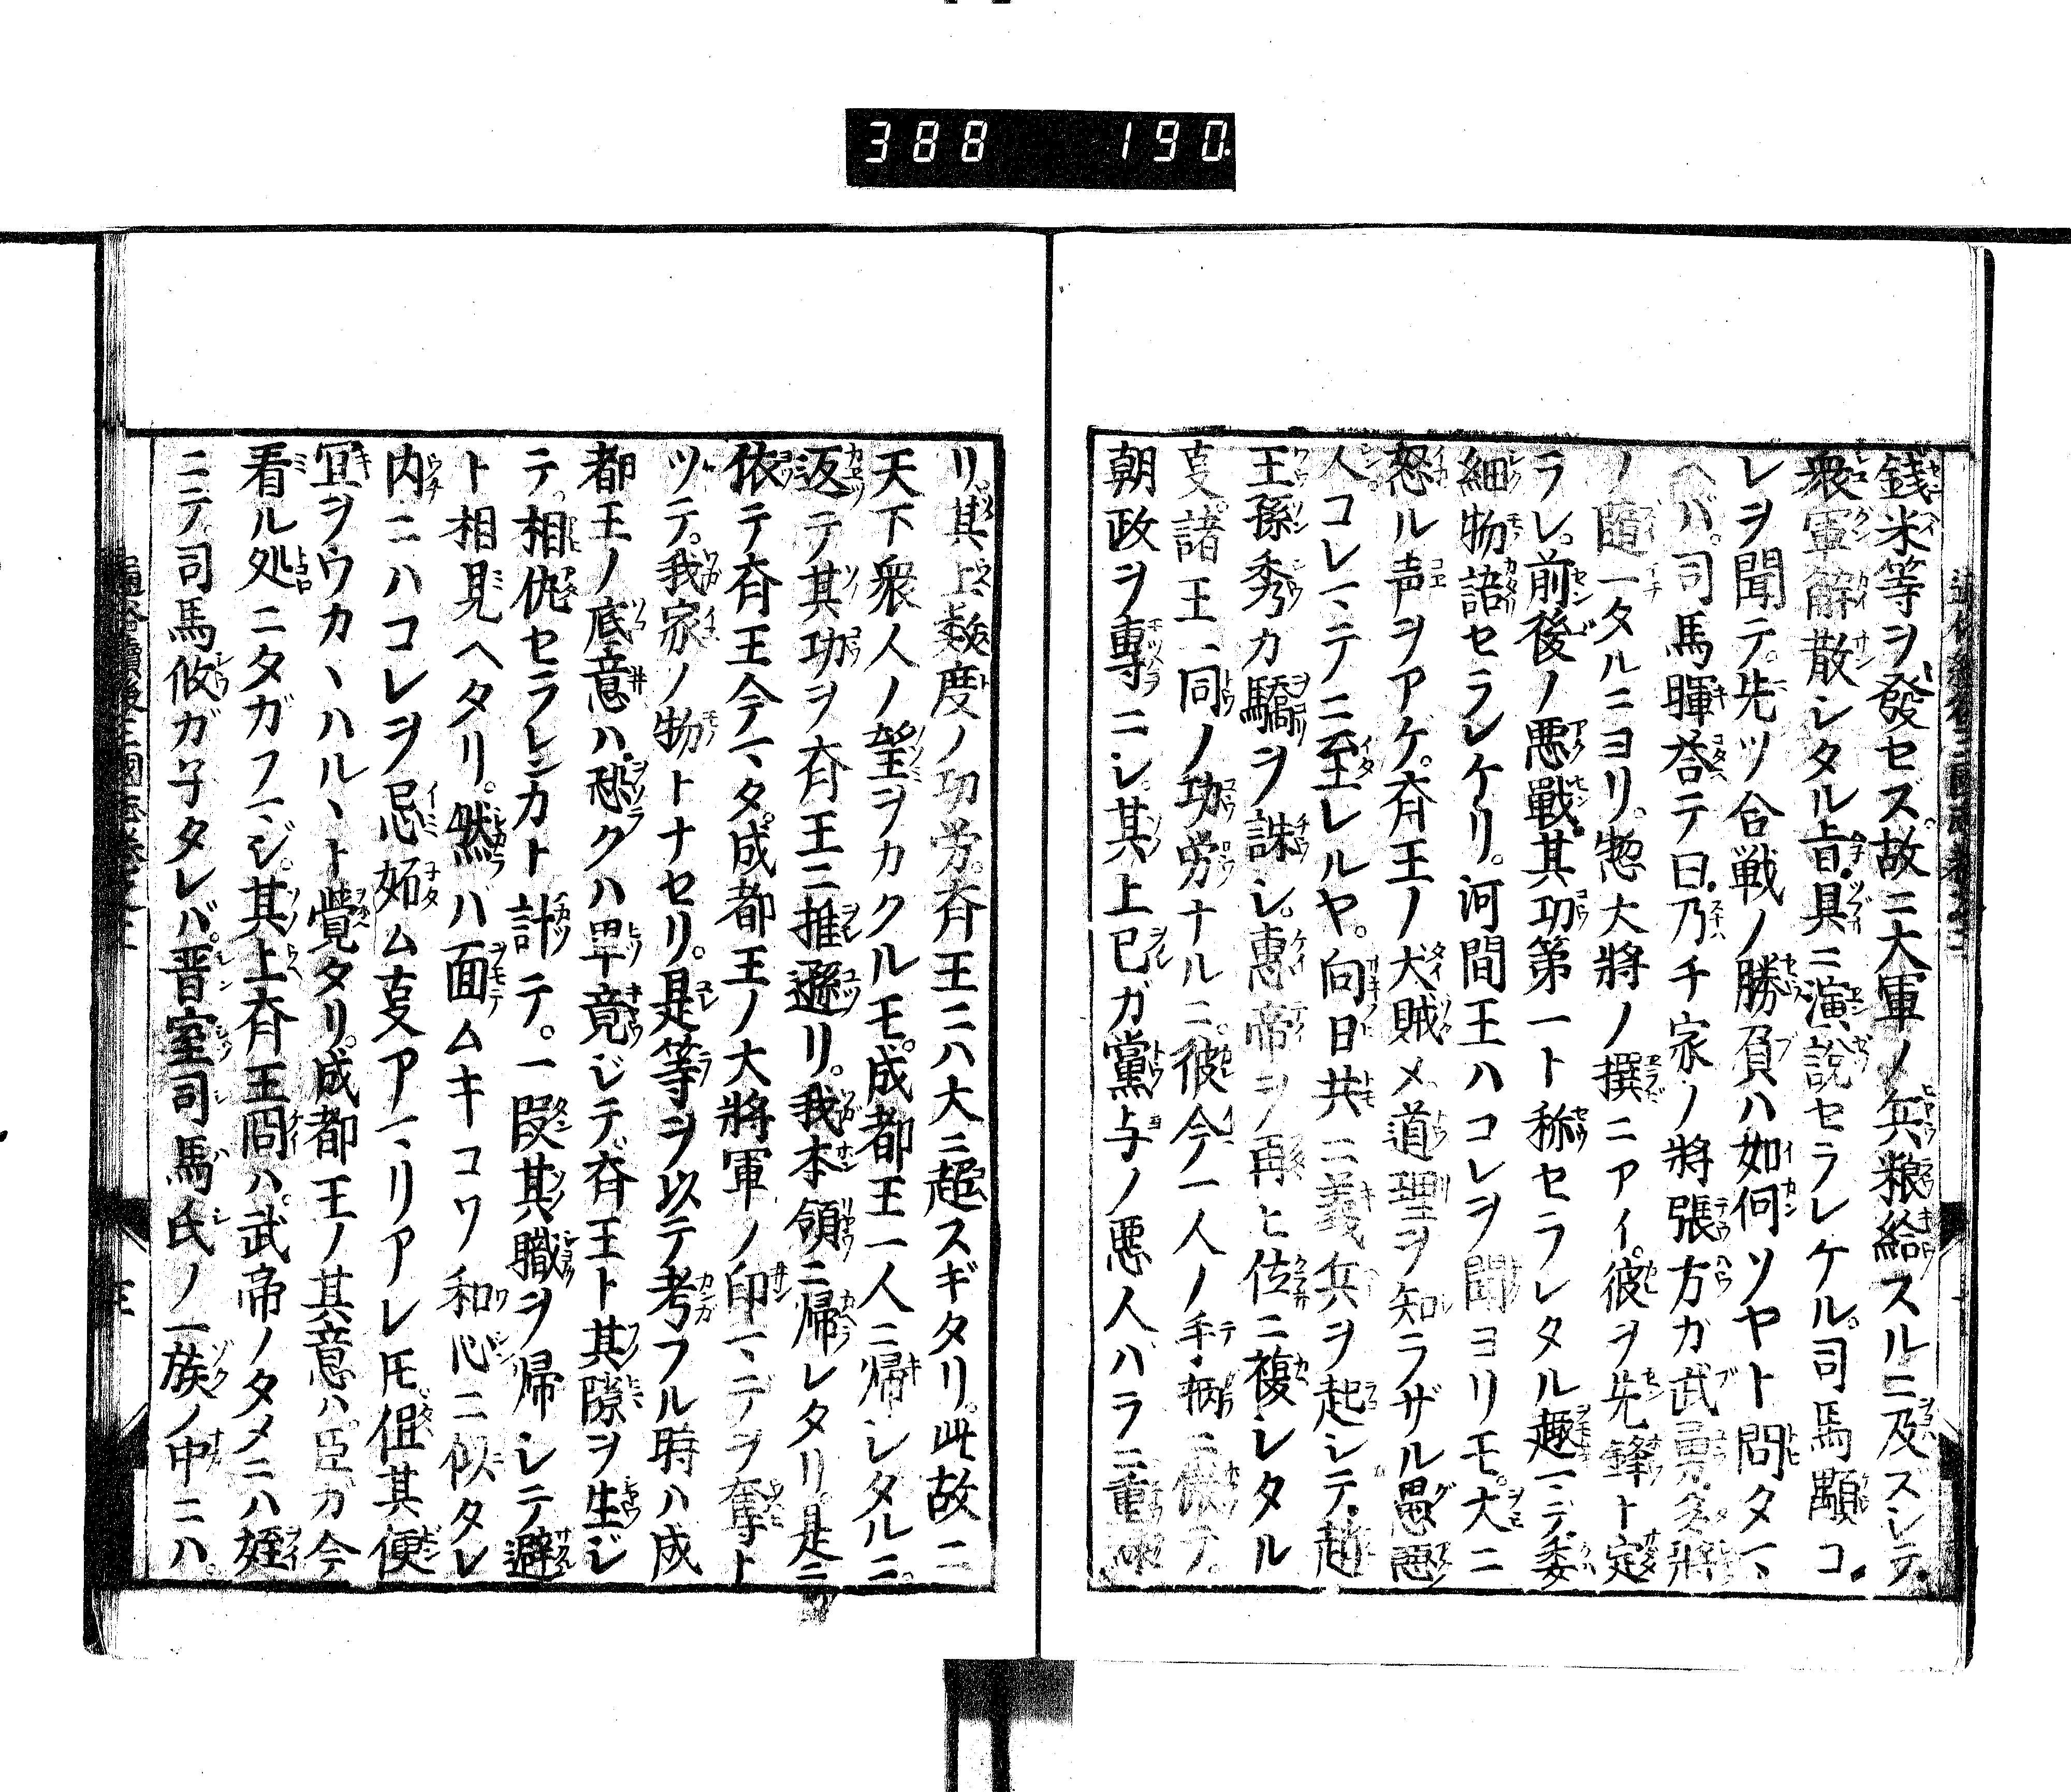 388 190
銭米等ヲ發セズ。故ニ大軍ノ兵粮給スルニ及ズシテ。
衆軍解散シタル旨。具ニ演説セラレケル。司馬顒コ
レヲ聞テ。先ツ合戦ノ勝負ハ如何ソヤト問タマ
ヘバ。司馬暉荅テ曰。乃チ家ノ將張方ガ武勇。
ノ一タルニヨリ。惣大將ノ撰ニアイ。彼ヲ先鋒ト定
ラレ。前後ノ悪戰。其功第一ト称セラレタル趣マデ。委
細物語セラレケリ。河間王ハコレヲ聞ヨリモ。大ニ
怒ル声ヲアゲ。斉王ノ犬賊メ。道理ヲ知ラザル愚悪
人。コレマテニ至レルヤ。向日共ニ義兵ヲ起シテ。趙
王孫秀カ驕ヲ誅シ。惠帝ヲ再ヒ位ニ複シタル
叓。諸王一同ノ功労ナルニ。彼今一人ノ手柄ニ テ。
朝政ヲ專ニシ。其上已ガ黨与ノ悪人バラニ重
リ。其上数度ノ功労。斉王ニハ大ニ超スギタリ。此故ニ
天下衆人ノ望ヲカクルモ。成都王一人ニ帰シタルニ。
返テ其功ヲ斉王ニ推遜リ。我本領ニ帰レタリ。是ニ
依テ斉王今マタ。成都王ノ大將軍ノ印マデヲ奪ト
ツテ。我家ノ物トナセリ。是等ヲ以テ考フル時ハ成
都王ノ底意ハ。恐クハ畢竟ジテ。斉王ト其隙ヲ生ジ
テ。相仇セラレンカト計テ。一段其職ヲ帰シテ避
ト相見ヘタリ。然バ面ムキコワ和心ニ似タレ
内ニハコレヲ忌妬ム叓アマリアレ𪜈。但其便
冝ヲウカヽハルヽト覺タリ。成都王ノ其意ハ。臣ガ今
看ル処ニタガフマジ。其上斉王冏ハ。武帝ノタメニハ姪
ニテ。司馬攸ガ子タレバ。晋室司馬氏ノ一族ノ中ニハ。
三